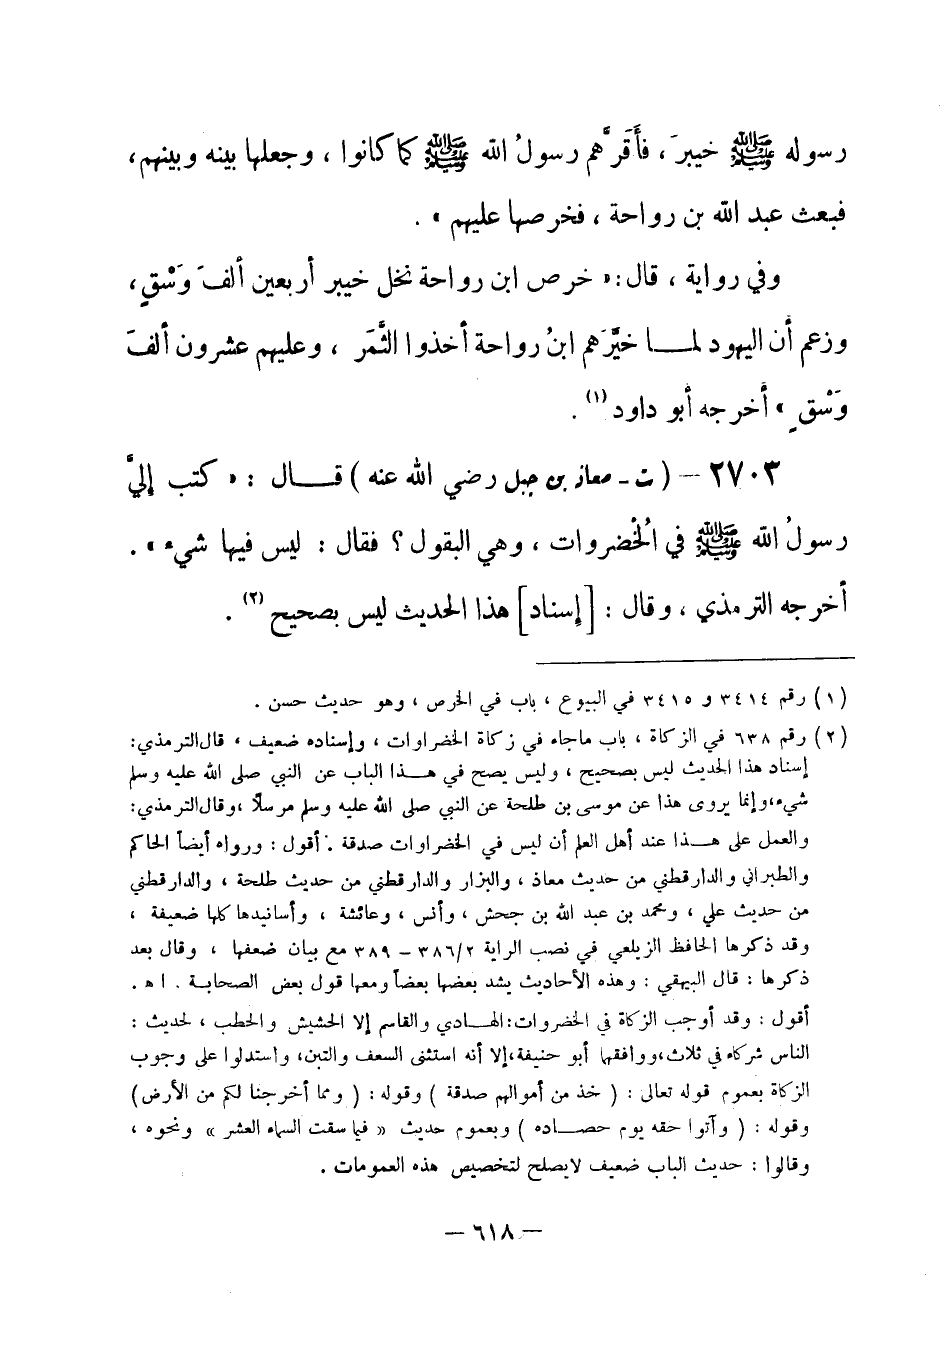 رسوله ﷺ خيبرَ ، فأَقرَّهم رسولُ الله ﷺ كما كانوا ، وجعلها بينه وبينهم،
فبعث عبد الله بن رواحة ، فخرصها عليهم » .
وفي رواية ، قال :« خرص ابن رواحة نخل خيبر أربعين ألفَ وَسْقٍ ،
وزعم أن اليهود لمــا خيَّرَهم ابنُ رواحة أخذوا الثَّمَر ، وعليهم عشرون ألفَ
وَسْقٍ » أخرجه أبو داود (١) .
٢٧٠٣ – ( ت - معاذ بن جبل رضي الله عنه ) قــال : « كتب إليَّ
رسولُ الله ﷺ في الُخْضروات ، وهي البقول ؟ فقال : ليس فيها شيء » .
أخرجه الترمذي ، وقال : [إسناد] هذا الحديث ليس بصحيح (٢) .
(١) رقم ٣٤١٤ و ٣٤١٥ في البيوع ، باب في الخرص ، وهو حديث حسن .
(٢) رقم ٦٣٨ في الزكاة ، باب ماجاء في زكاة الخضراوات ، وإسناده ضعيف ، قال الترمذي:
إسناد هذا الحديث ليس بصحيح ، وليس يصح في هــذا الباب عن النبي صلى الله عليه وسلم
شيء،وإنما يروى هذا عن موسى بن طلحة عن النبي صلى الله عليه وسلم مرسلاً ،وقال الترمذي:
والعمل على هــذا عند أهل العلم أن ليس في الخضراوات صدقة . أقول : ورواه أيضاً الحاكم
والطبراني والدارقطني من حديث معاذ ، والبزار والدارقطني من حديث طلحة ، والدارقطني
من حديث علي ، ومحمد بن عبد الله بن جحش ، وأنس ، وعائشة ، وأسانيدها كلها ضعيفة ،
وقد ذكرها الحافظ الزيلعي في نصب الراية ٣٨٦/٢ – ٣٨٩ مع بيان ضعفها ، وقال بعد
ذكرها : قال البيهقي : وهذه الأحاديث يشد بعضها بعضاً ومعها قول بعض الصحابــة . ا ه .
أقول : وقد أوجب الزكاة في الخضروات: الهــادي والقاسم إلا الحشيش والحطب ، لحديث :
الناس شركاء في ثلاث،ووافقها أبو حنيفة،إلا أنه استثنى السعف والتبن، واستدلوا على وجوب
الزكاة بعموم قوله تعالى : ( خذ من أموالهم صدقة ) وقوله : ( ومما أخرجنا لكم من الأرض )
وقوله : ( وآتوا حقه يوم حصــاده ) وبعموم حديث « فيما سقت السماء العشر » ونحوه ،
وقالوا : حديث الباب ضعيف لايصلح لتخصيص هذه العمومات .
– ٦١٨ –